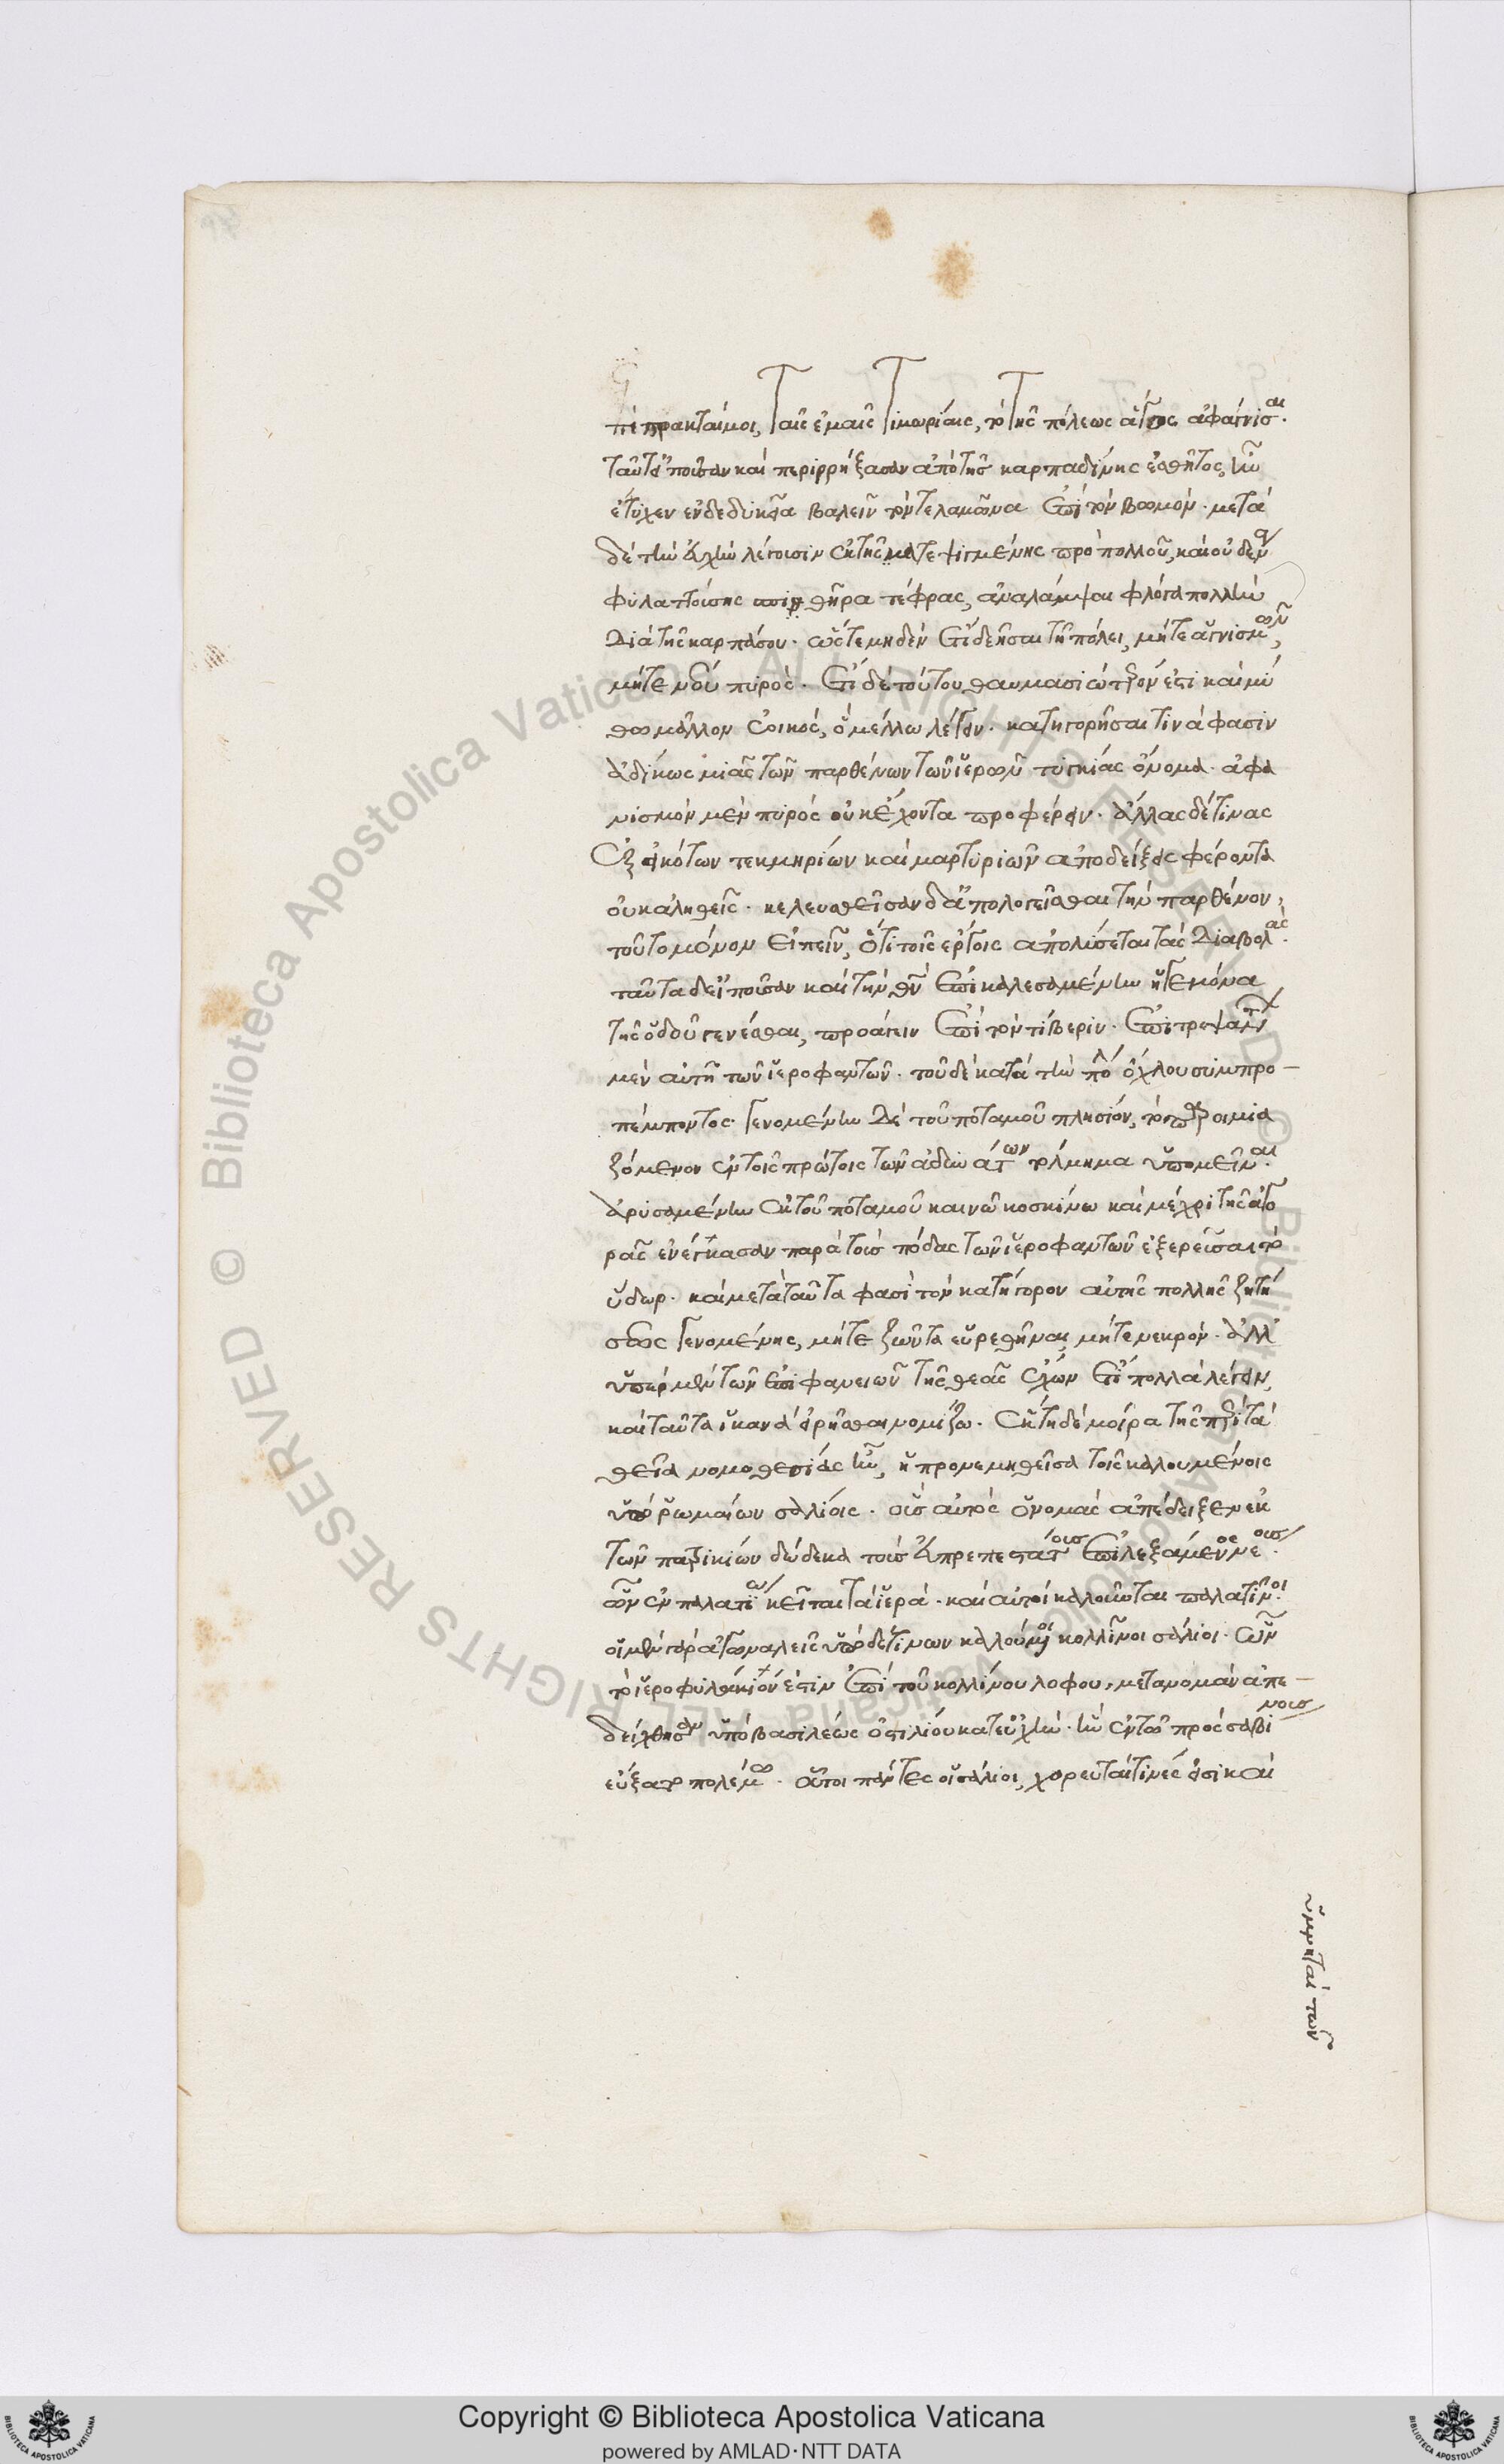 πέπρακταί μοι, ταῖς ἐμαῖς τιμωρίαις, τὸ τῆς πόλεως ἄγος ἀφάγνισαι.
ταῦτ' εἰποῦσαν καὶ περιρρήξασαν ἀπὸ τῆς καρπασίνης ἐσθῆτος, ἣν
ἔτυχεν ἐνδεδυκυῖα βαλεῖν τὸν τελαμῶνα ἐπὶ τὸν βωμόν. μετὰ
δὲ τὴν εὐχὴν λέγουσιν ἐκ τῆς κατεψυγμένης πρὸ πολλοῦ, καὶ οὐδένα
φυλαττούσης σπινθῆρα τέφρας, ἀναλάμψαι φλόγα πολλὴν
διὰ τῆς καρπάσου. ὥστε μηδὲν ἔτι δεῆσαι τῇ πόλει, μήτε ἁγνισμῶν,
μήτε νέου πυρός. ἔτι δὲ τούτου θαυμασιώτερόν ἐστι καὶ μύ
θῳ μᾶλλον ἐοικός, ὃ μέλλω λέγειν. κατηγορῆσαί τινά φασιν
ἀδίκως μιᾶς τῶν παρθένων τῶν ἱερῶν τυγκίας ὄνομα. ἀφα
νισμὸν μὲν πυρὸς οὐκ ἔχοντα προφέρειν. ἄλλας δέ τινας
ἐξ εἰκότων τεκμηρίων καὶ μαρτυριῶν ἀποδείξεις φέροντα
οὐκ ἀληθεῖς. κελευσθεῖσαν δ' ἀπολογεῖσθαι τὴν παρθένον,
τοῦτο μόνον εἰπεῖν, ὅτι τοῖς ἔργοις ἀπολύσεται τὰς διαβολάς.
ταῦτα δ' εἰποῦσαν καὶ τὴν θεὸν ἐπικαλεσαμένην ἡγεμόνα
τῆς ὁδοῦ γενέσθαι, προάγειν ἐπὶ τὸν τίβεριν. ἐπιτρεψάντων
μὲν αὐτῇ τῶν ἱεροφαντῶν. τοῦ δὲ κατὰ τὴν πόλιν ὄχλου συμπρο-
πέμποντος. γενομένην δὲ τοῦ ποταμοῦ πλησίον, τὸ παροιμια
ζόμενον ἐν τοῖς πρώτοις τῶν ἀδυνάτων τόλμημα ὑπομεῖναι.
ἀρυσαμένην ἐκ τοῦ ποταμοῦ καινῷ κοσκίνῳ καὶ μέχρι τῆς ἀγο
ρᾶς ἐνέγκασαν παρὰ τοὺς πόδας τῶν ἱεροφαντῶν ἐξερεῦσαι τὸ
ὕδωρ. καὶ μετὰ ταῦτά φασι τὸν κατήγορον αὐτῆς πολλῆς ζητή
σεως γενομένης, μήτε ζῶντα εὑρεθῆναι, μήτε νεκρόν. ἀλλ'
ὑπὲρ μὲν τῶν ἐπιφανειῶν τῆς θεᾶς ἔχων ἔτι πολλὰ λέγειν,
καὶ ταῦτα ἱκανὰ εἰρῆσθαι νομίζω. ἕκτη δὲ μοῖρα τῆς περὶ τὰ
θεῖα νομοθεσίας ἦν, ἡ προσνεμηθεῖσα τοῖς καλουμένοις
ὑπὸ ῥωμαίων σαλίοις. οὓς αὐτὸς ὁ νομᾶς ἀπέδειξεν ἐκ
τῶν πατρικίων δώδεκα τοὺς εὐπρεπεστάτους ἐπιλεξάμενος νέους.
ὧν ἐν παλατίῳ κεῖται τὰ ἱερά. καὶ αὐτοὶ καλοῦνται παλατῖνοι.
οἱ μὲν γὰρ ἀγωναλεῖς ὑπὸ δέ τινων καλούμενοι κολλῖνοι σάλιοι. ὧν
τὸ ἱεροφυλάκιόν ἐστιν ἐπὶ τοῦ κολλίνου λόφου, μετὰ νομᾶν ἀπε-
δείχθησαν ὑπὸ βασιλέως ὁστιλίου κατ' εὐχὴν. ἣν ἐν τῷ πρὸς σαβίνους
εὔξατο πολέμῳ. οὗτοι πάντες οἱ σάλιοι, χορευταί τινές εἰσι καὶ
ὑμνηταὶ τῶν